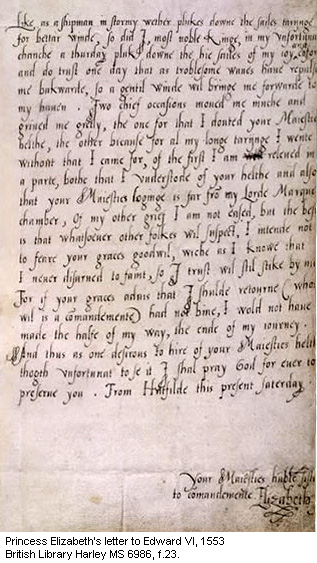 Like as a shipman in stormy wether plukes downe the sailes tarijnge
for bettar winde, so did I, most noble Kinge, in my vnfortuna
chanche a thurday pluk downe the hie sailes of my ioy and cofor
and do trust one day that as troblesome waues haue repulse
me bakwarde, so a gentil winde wil bringe me forwarde to
my hauen. Two chief occasions moued me muche and
grieued me gretly, the one for that I douted your Maiestie
helthe, the other bicause for al my longe tarijnge I wente
without that I came for, of the first I am releued in
a parte, bothe that I vnderstode of your helthe and also
that your Maiesties loginge is far fro my Lorde Marques
chamber, Of my other grief I am not eased, but the best
is that whatsoeuer other folkes wil suspect, I intende not
to feare your graces goodwil, wiche as I knowe that
I neuer disarued to faint, so I trust wil stil stike by me
For if your graces aduis that I shulde retourne (whos
wil is a comandemente) had not bine, I wold not haue
made the halfe of my way, the ende of my iourney.
And thus as one desirous to hire of your Maiesties helth
thogth vnfortunat to se it I shal pray God for euer to
preserue you. From Hatfilde this present saterday.
Your Maiesties huble sist
to comandemente Elizabeth
Princess Elizabeth's letter to Edward VI, 1553
British Library Harley MS 6986, f.23.